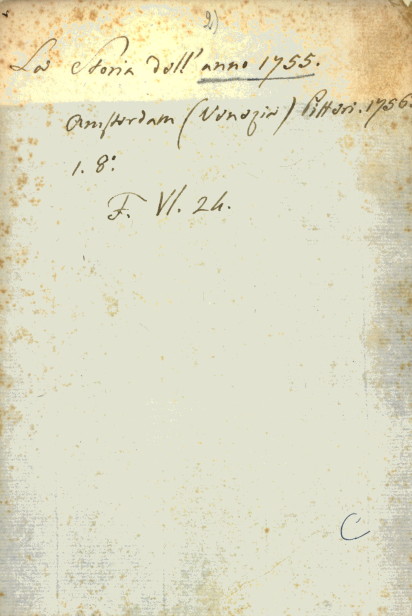 2)
La Storia dell' anno 1755.
Amsterdam (Venezia) Pitteri. 1756.
1. 8°.
F. VI. 24.
C